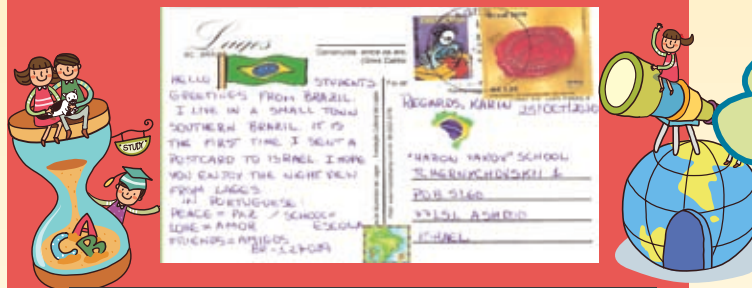 Lages
HELLO STUDENTS
GREETINGS FROM BRAZIL.
I LIVE IN A SMALL TOWN
SOUTHERN BRAZIL. IT IS
THE FIRST TIME I SENT A
POSTCARD TO ISRAEL. I HOPE
YOU ENJOY THE NIGHT VIEW
FROM LAGES
IN PORTUGUESE:
PEACE = PAZ / SCHOOL=
LOVE = AMOR ESCOLA
FRIENDS = AMIGOS
BR-127029
REGARDS, KARIN 25/OCT/2010
"HARON YAKOV" SCHOOL
TCHERNYCHOVSKII 1
POB 5160
77151 ASHDOD
ISRAEL
STUDY
A
C B